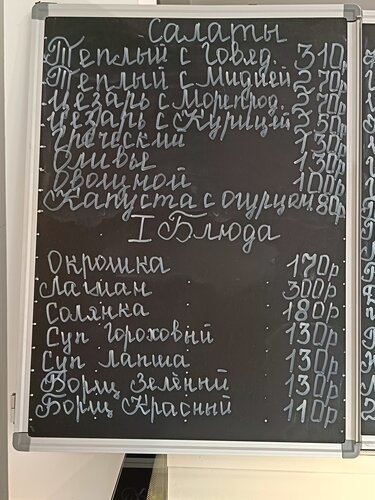 Салаты
Теплый с Говяд. 310р
Теплый с Мидией 270р
Цезарь с Морепрод. 270р
Цезарь с Курицей 250р
Греческий 130р
Оливье 130р
Овощной 100р
Капуста с огурцом 80р
I Блюда
Окрошка 170р
Лагман 300р
Солянка 180р
Суп Гороховый 130р
Суп Лапша 130р
Борщ Зелёный 130р
Борщ Красный 110р